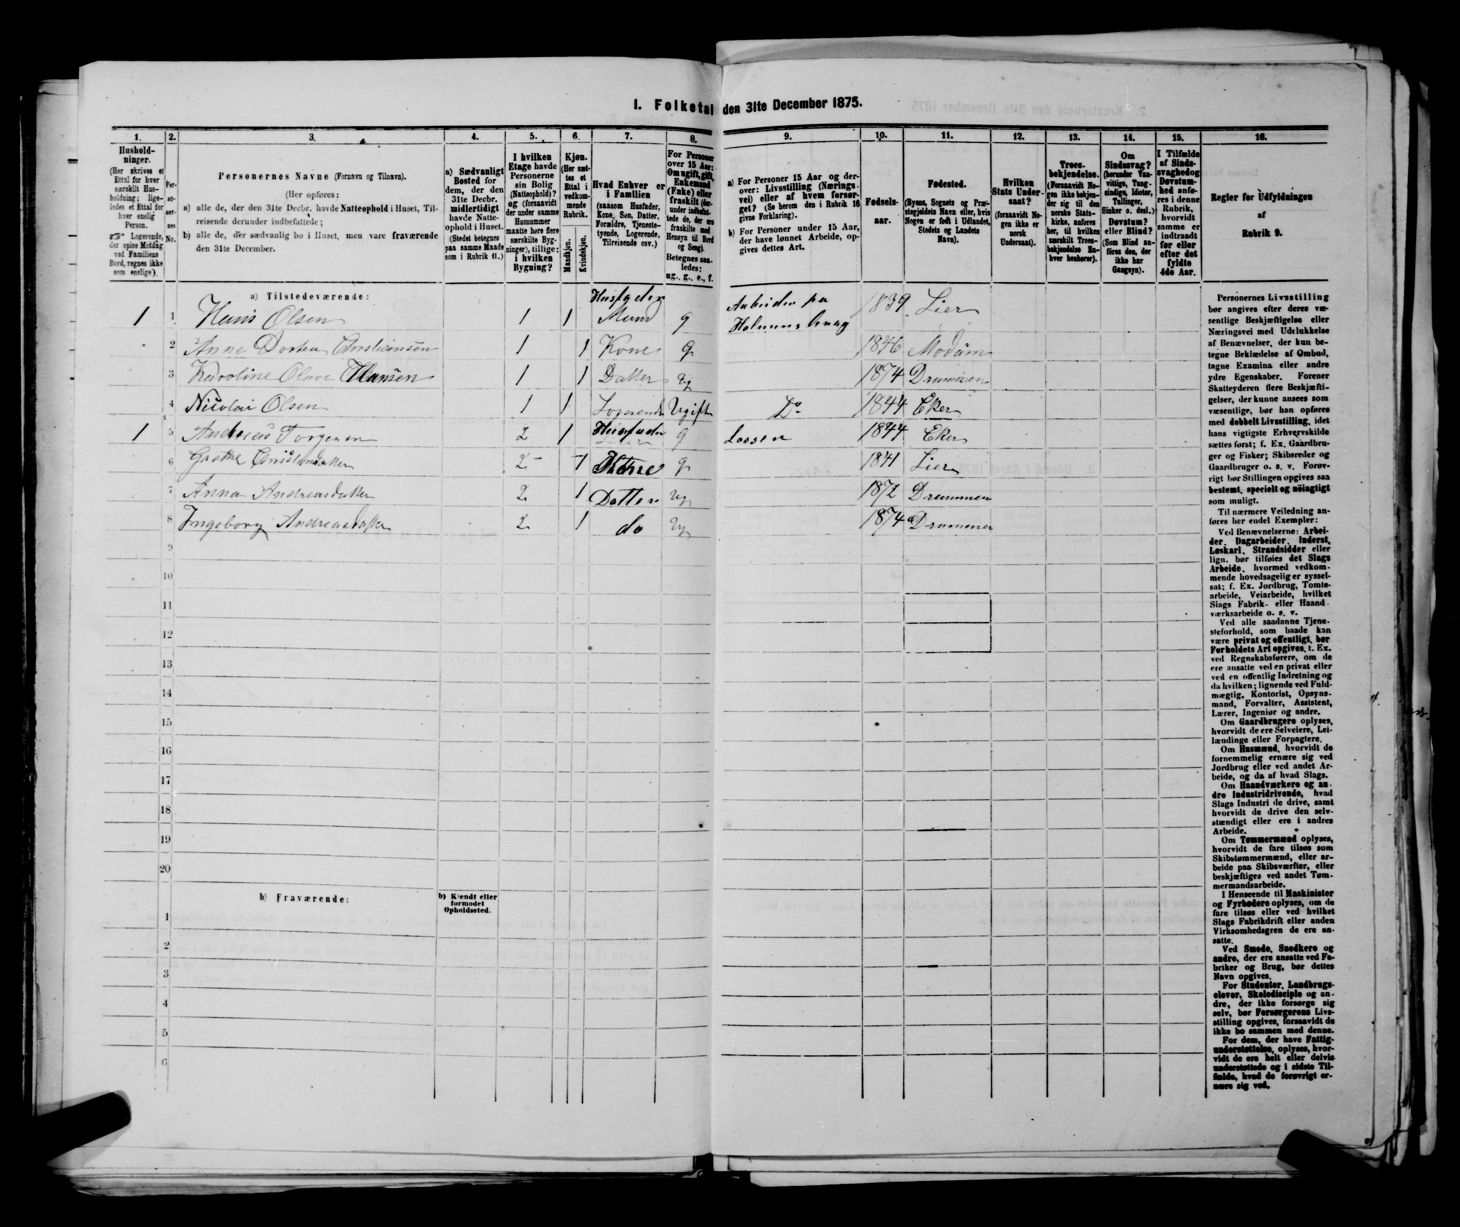 I. Folketal den 31te December 1875.
1. 2. 3. 4. 5. 6. 7. 8. 9. 10. 11. 12. 13. 14. 15. 16.
Hushold-
ninger.
(Her skrives et
Ettal for hver
særskilt Hus-
holdning; lige-
ledes et Ettal for
hver enslig
Person.
☞ Logerende,
der spise Middag
ved Familiens
Bord, regnes ikke
som enslige).
Per-
so-
ner-
nes
No.
Personernes Navne (Fornavn og Tilnavn).
(Her opføres:
a) alle de, der den 31te Decbr. havde Natteophold i Huset, Til-
reisende derunder indbefattede;
b) alle de, der sædvanlig bo i Huset, men vare fraværende
den 31te December.
a) Sædvanligt
Bosted for
dem, der den
31te Decbr.
midlertidigt
havde Natte-
ophold i Huset.
(Stedet betegnes
paa samme Maade
som i Rubrik 11.)
I hvilken
Etage havde
Personerne
sin Bolig
(Natteophold)?
og (forsaavidt
der under samme
Husnummer
maatte høre flere
særskilte Byg-
ninger), tillige:
i hvilken
Bygning?
Kjøn.
(Her sæt-
tes et
Ettal i
vedkom-
mende
Rubrik.
Mandkjøn.
Kvindekjøn.
Hvad Enhver er
i Familien
(saasom Husfader,
Kone, Søn, Datter,
Forældre, Tjeneste-
tyende, Logerende,
Tilreisende osv.)
For Personer
over 15 Aar:
Om ugift, gift,
Enkemand
(Enke) eller
fraskilt (der-
under indbefat-
tede de, der ere
fraskilte med
Hensyn til Bord
og Seng).
Betegnes saa-
ledes:
ug., g., e., f.
a) For Personer 15 Aar og der-
over: Livsstilling (Nærings-
vei) eller af hvem forsør-
get? (Se herom den i Rubrik 16
givne Forklaring).
b) For Personer under 15 Aar,
der have lønnet Arbeide, op-
gives dettes Art.
Fødsels-
aar.
Fødested.
(Byens, Sognets og Præ-
stegjeldets Navn eller, hvis
Nogen er født i Udlandet,
Stedets og Landets
Navn).
Hvilken
Stats Under-
saat?
(forsaavidt No-
gen ikke er
norsk
Undersaat).
Troes-
bekjendelse.
(Forsaavidt No-
gen ikke bekjen-
der sig til den
norske Stats-
kirke, anføres
her, til hvilken
særskilt Troes-
bekjendelse En-
hver henhører).
Om
Sindssvag?
(herunder Van-
vittige, Tung-
sindige, Idioter,
Tullinger,
Sinker o. desl.)
Døvstum?
eller Blind?
(Som Blind an-
føres den, der
ikke har
Gangsyn).
I Tilfælde
af Sinds-
svaghed og
Døvstum-
hed anfø-
res i denne
Rubrik,
hvorvidt
samme er
indtraadt
før eller
efter det
fyldte
4de Aar.
Regler for Udfyldningen
af
Rubrik 9.
a) Tilstedeværende:
1 1 Hans Olsen 1 1 Husfader Mand g Arbeider pa Holmens brug 1839 Lier
2 Anne Dortea Christiansen 1 1 Kone g 1846 Modum
3 Karoline Olava Hansen 1 1 Datter ug 1874 Drammen
4 Nicolai Olsen 1 1 Logerende Ugift Do 1844 Eker
1 5 Andreas Torgersen 2 1 Husfader g 1844 Eker
6 Grethe Christensdatter 2 1 Kone g 1841 Lier
7 Anna Andreasdatter 2 1 Datter ug 1872 Drammen
8 Ingeborg Andreasdatter 2 1 do ug 1874 Drammen
9
10
11
12
13
14
15
16
17
18
19
20
b) Fraværende:
b) Kjendt eller
formodet
Opholdssted.
1
2
3
4
5
6
Personernes Livsstilling
bør angives efter deres væ-
sentlige Beskjæftigelse eller
Næringsvei med Udelukkelse
af Benævnelser, der kun be-
tegne Beklædelse af Ombud,
tagne Examina eller andre
ydre Egenskaber. Forener
Skatteyderen flere Beskjæfti-
gelser, der kunne ansees som
væsentlige, bør han opføres
med dobbelt Livsstilling, idet
hans vigtigste Erhvervskilde
sættes først; f. Ex. Gaardbru-
ger og Fisker; Skibsreder og
Gaardbruger o. s. v. Forøv-
rigt bør Stillingen opgives saa
bestemt, specielt og nøiagtigt
som muligt.
Til nærmere Veiledning an-
føres her endel Exempler:
Ved Benævnelserne: Arbei-
der, Dagarbeider, Inderst,
Løskarl, Strandsidder eller
lign. bør tilføies det Slags
Arbeide, hvormed vedkom-
mende hovedsagelig er syssel-
sat; f. Ex. Jordbrug, Tomte-
arbeide, Veiarbeide, hvilket
Slags Fabrik- eller Haand-
værksarbeide o. s. v.
Ved alle saadanne Tjene-
steforhold, som baade kan
være privat og offentligt, bør
Forholdets Art opgives, t. Ex.
ved Regnskabsførere, om de
ere ansatte ved en privat eller
ved en offentlig Indretning og
da hvilken; lignende ved Fuld-
mægtig, Kontorist, Opsyns-
mand, Forvalter, Assistent,
Lærer, Ingeniør og andre.
Om Gaardbrugere oplyses,
hvorvidt de ere Selveiere, Lei-
lændinge eller Forpagtere.
Om Husmænd, hvorvidt de
fornemmelig ernære sig ved
Jordbrug eller ved andet Ar-
beide, og da af hvad Slags.
Om Haandværkere og an-
dre Industridrivende, hvad
Slags Industri de drive, samt
hvorvidt de drive den selv-
stændigt eller ere i andres
Arbeide.
Om Tømmermænd oplyses,
hvorvidt de fare tilsøs som
Skibstømmermænd, eller ar-
beide paa Skibsværfter, eller
beskjæftiges ved andet Tøm-
mermandsarbeide.
I Henseende til Maskinister
og Fyrbødere oplyses, om de
fare tilsøs eller ved hvilket
Slags Fabrikdrift eller anden
Virksomhedsgren de ere an-
satte.
Ved Smede, Snedkere og
andre, der ere ansatte ved Fa-
briker og Brug, bør dettes
Navn opgives.
For Studenter, Landbrugs-
elever, Skoledisciple og an-
dre, der ikke forsørge sig
selv, bør Forsørgerens Livs-
stilling opgives, forsaavidt de
ikke bo sammen med denne.
For dem, der have Fattig-
understøttelse, oplyses, hvor-
vidt de ere helt eller delvis
understøttede og i sidste Til-
fælde, hvad de forøvrigt er-
nære sig ved.